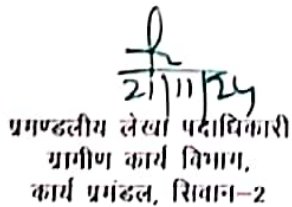 21/11/24
प्रमण्डलीय लेखा पदाधिकारी
ग्रामीण कार्य विभाग,
कार्य प्रमंडल, सिवान-2